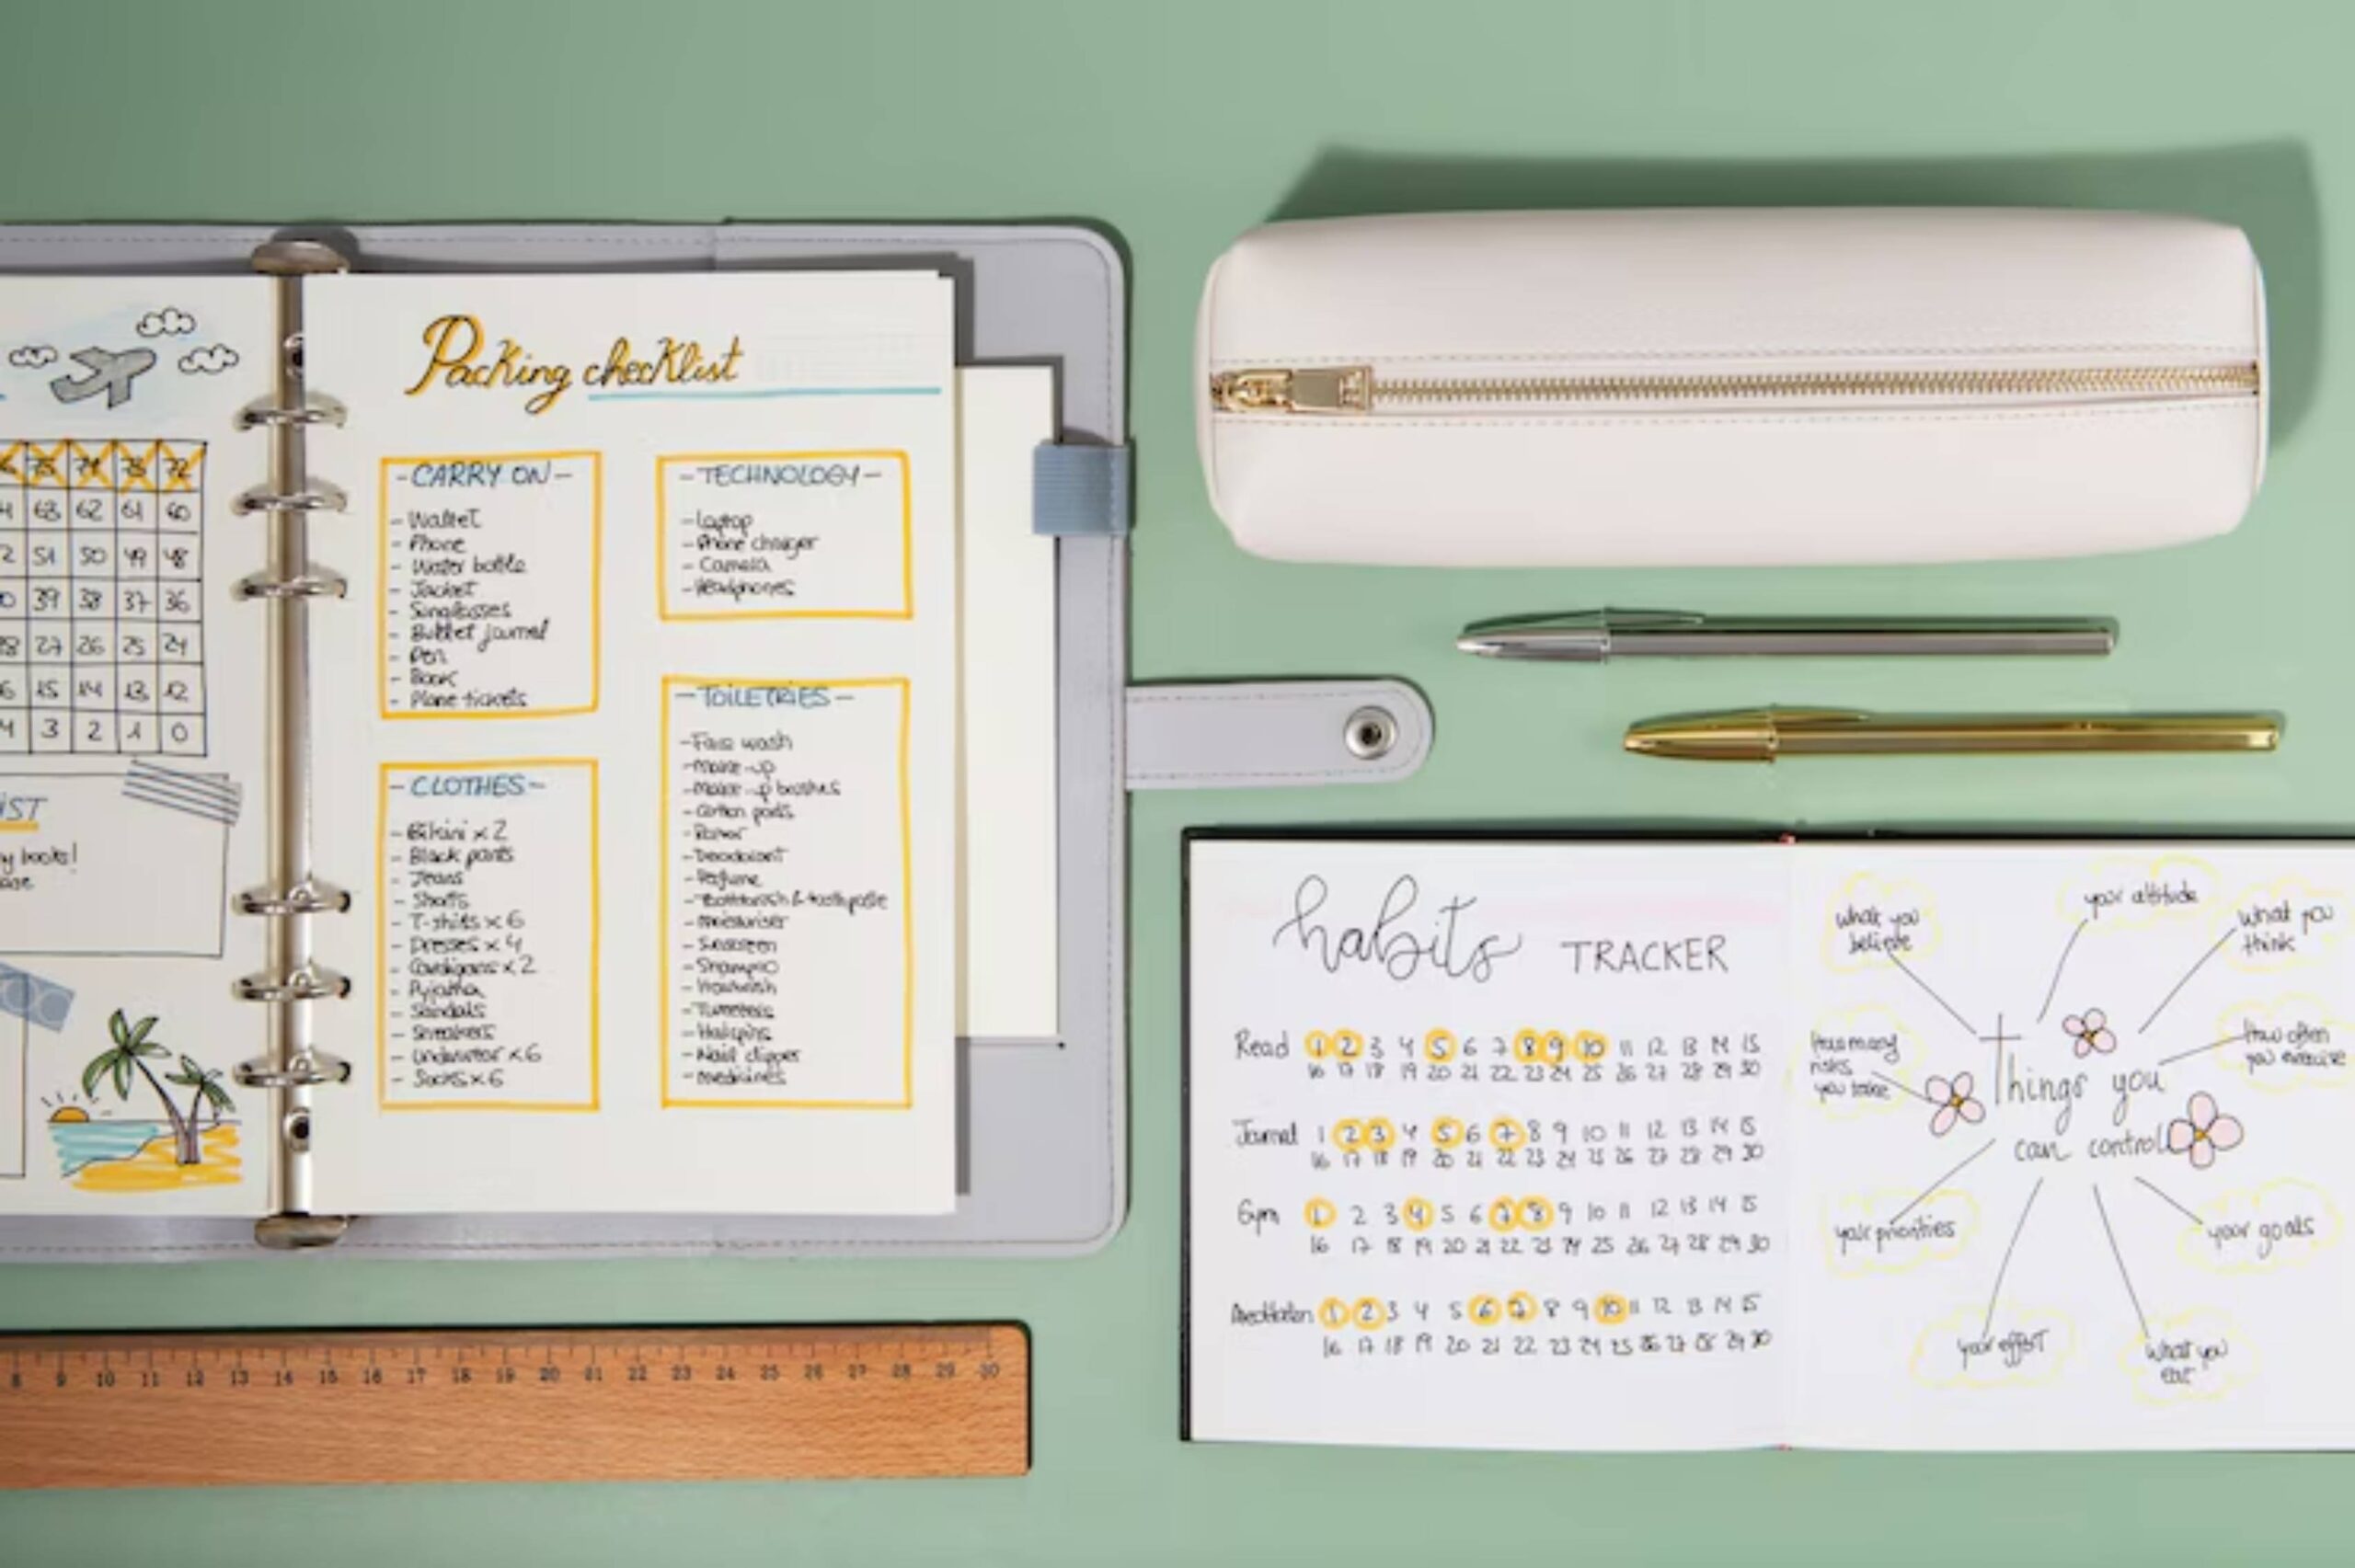 75 74 73 72
63 62 61 60
51 50 49 48
39 38 37 36
27 26 25 24
15 14 13 12
4 3 2 1 0
IST
y books!
Packing checklist
- CARRY ON -
- Wallet
- Phone
- Water bottle
- Jacket
- Sunglasses
- Bullet journal
- Pen
- Book
- Plane tickets
- CLOTHES -
- Bikini x 2
- Black pants
- Jeans
- Shorts
- T-shirts x 6
- Dresses x 4
- Cardigans x 2
- Pyjama
- Sandals
- Sneakers
- Underwear x 6
- Socks x 6
- TECHNOLOGY -
- Laptop
- Phone charger
- Camera
- Headphones
- TOILETRIES -
- Face wash
- Make-up
- Make-up brushes
- Cotton pads
- Razor
- Deodorant
- Perfume
- Toothbrush & toothpaste
- Moisturiser
- Sunscreen
- Shampoo
- Tweezers
- Hairpins
- Nail clipper
- Medicines
8 9 10 11 12 13 14 15 16 17 18 19 20 21 22 23 24 25 26 27 28 29 30
habits TRACKER
Read 1 2 3 4 5 6 7 8 9 10 11 12 13 14 15
16 17 18 19 20 21 22 23 24 25 26 27 28 29 30
Journal 1 2 3 4 5 6 7 8 9 10 11 12 13 14 15
16 17 18 19 20 21 22 23 24 25 26 27 28 29 30
Gym 1 2 3 4 5 6 7 8 9 10 11 12 13 14 15
16 17 18 19 20 21 22 23 24 25 26 27 28 29 30
Meditation 1 2 3 4 5 6 7 8 9 10 11 12 13 14 15
16 17 18 19 20 21 22 23 24 25 26 27 28 29 30
what you
believe
your attitude
What you
think
How many
risks
you take
How often
you exercise
Things you
can control
your priorities
your goals
your effort
What you
eat